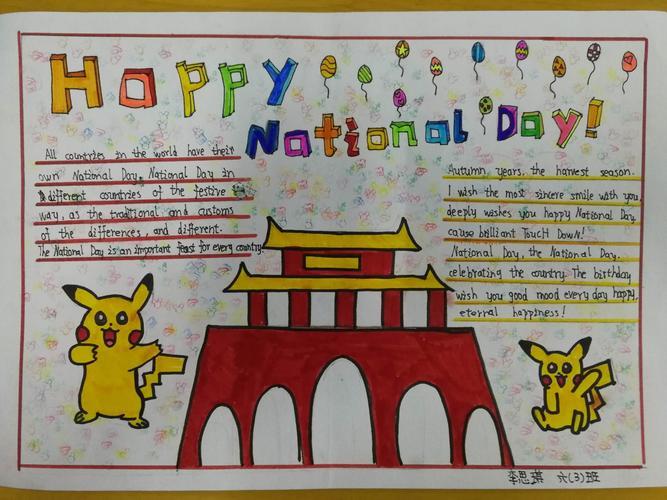 Happy
National Day!
All countries in the world have their
own National Day, National Day in
different countries of the festive
way, as the traditional and customs
of the differences, and different.
The National Day is an important feast for every country.
Autumn, years, the harvest season.
I wish the most sincere smile with you,
deeply wishes you happy National Day,
cause brilliant Touch Down!
National Day, the National Day.
celebrating the country. The birthday
wish you good mood every day happy,
eternal happiness!
李思 六(3)班